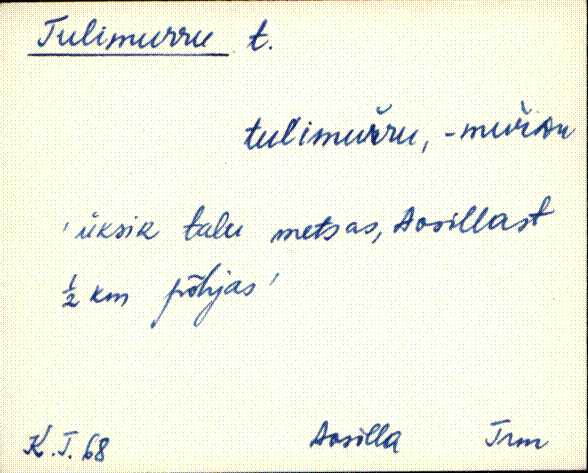 Tulimurru t.
tulimurru, -murru
'üksik talu metsas, Aosillast
½ km põhjas'
K.T. 68 Aosilla Trm